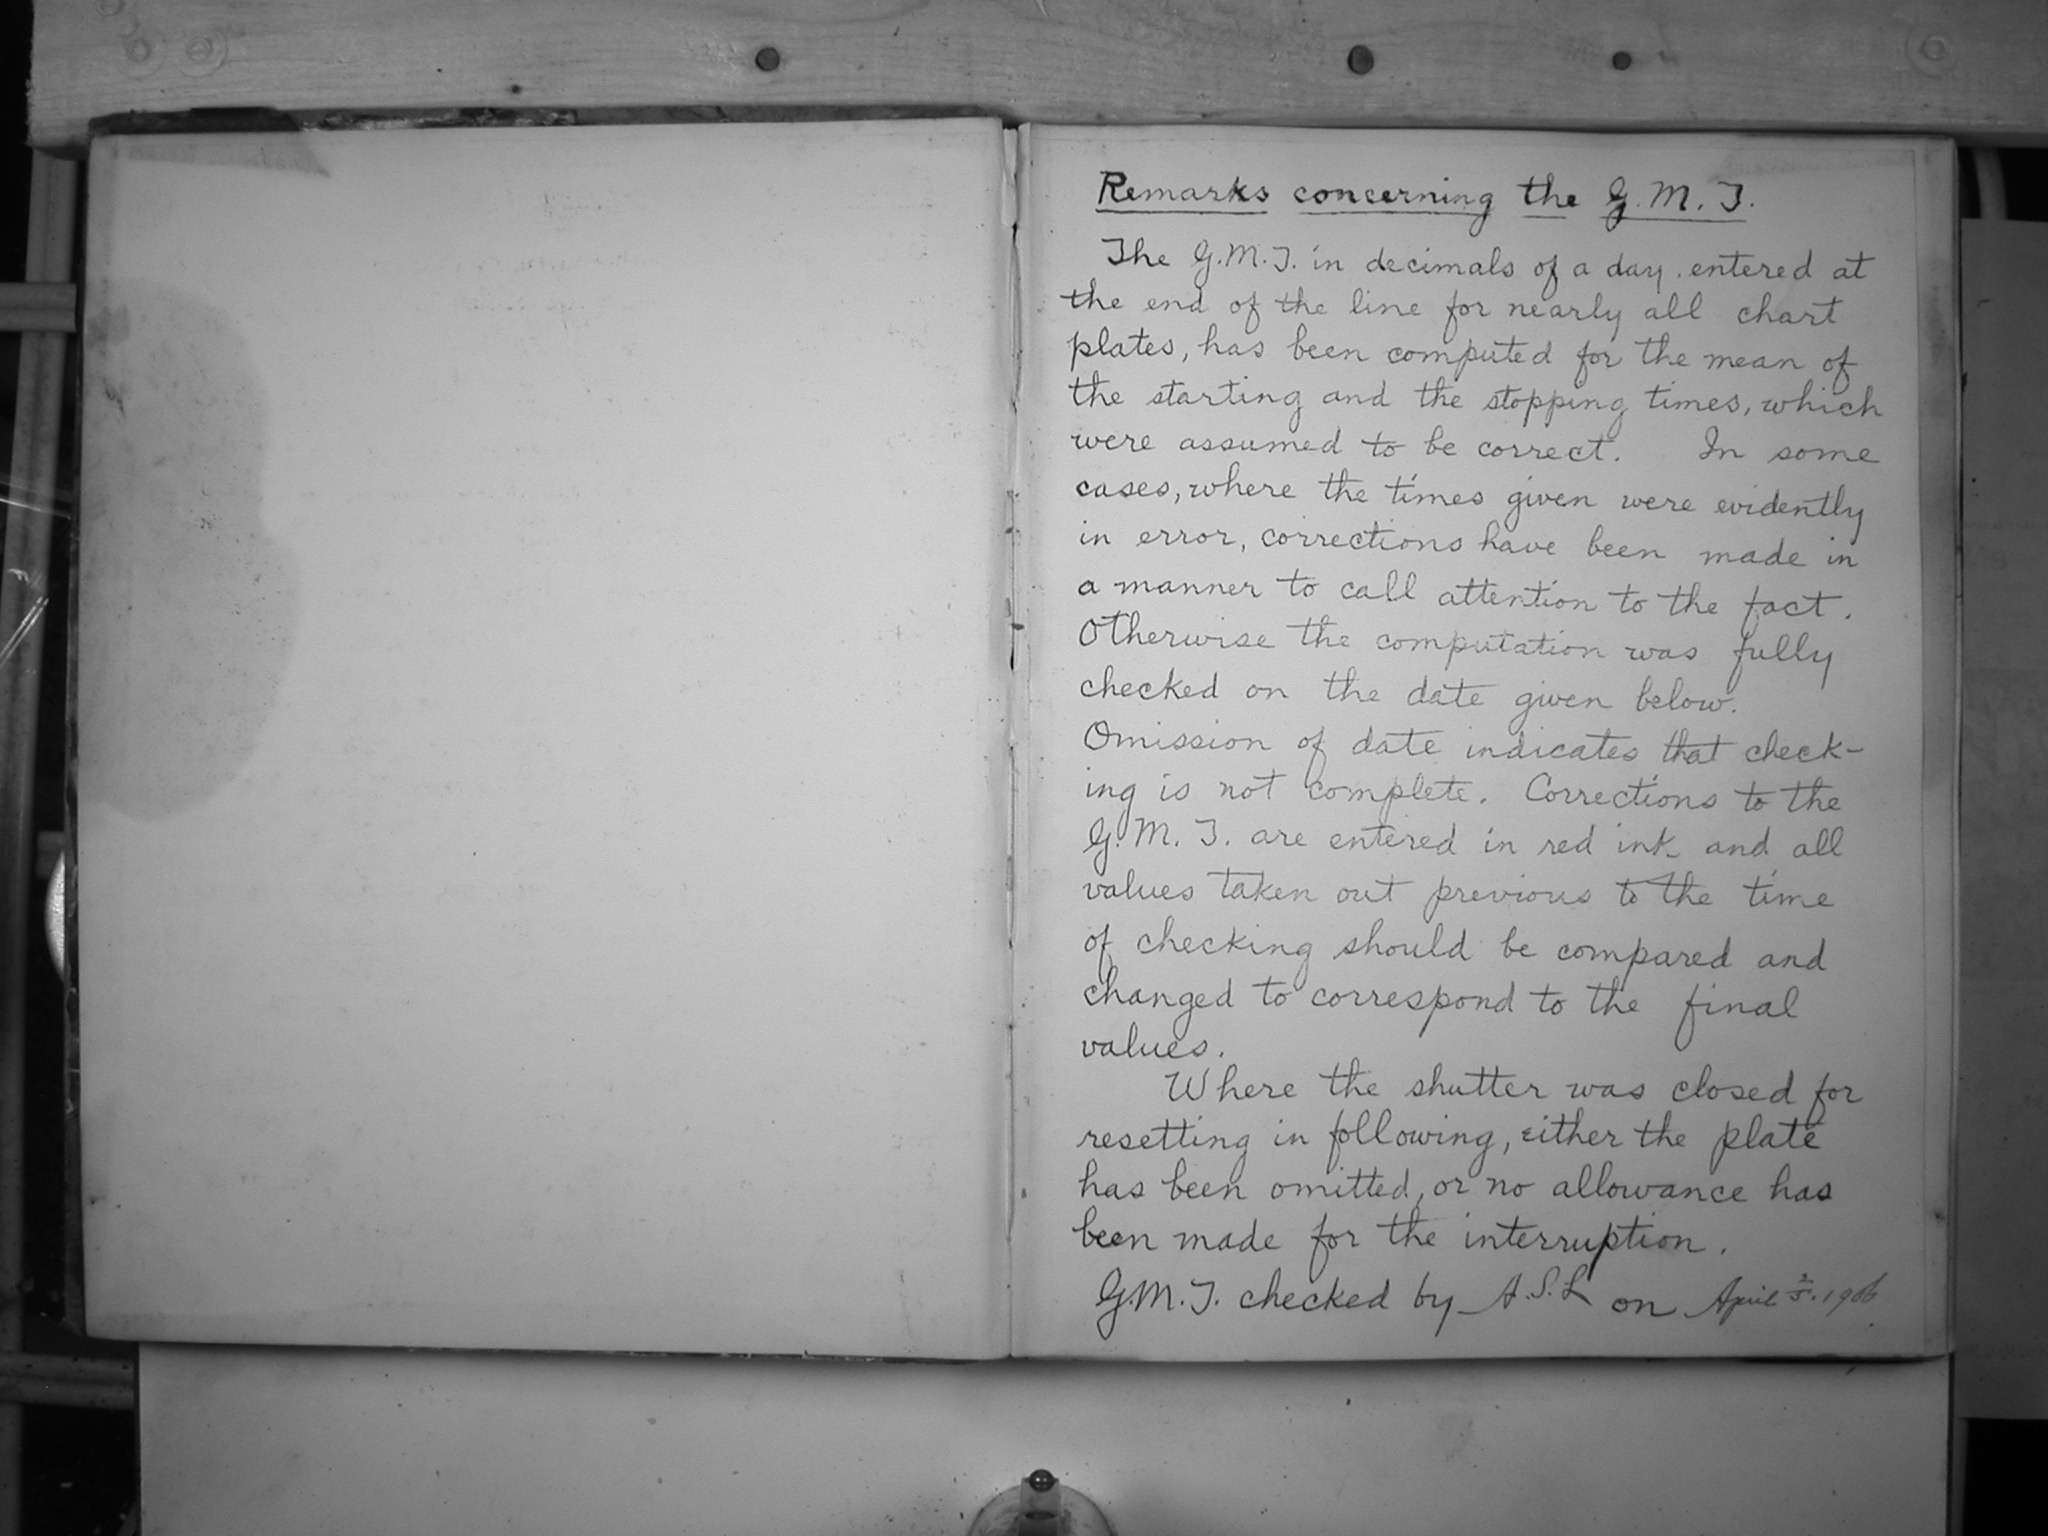 Remarks concerning the G.M.T.
The G.M.T. in decimals of a day, entered at
the end of the line for nearly all chart
plates, has been computed for the mean of
the starting and the stopping times, which
were assumed to be correct. In some
cases, where the times given were evidently
in error, corrections have been made in
a manner to call attention to the fact.
Otherwise the computation was fully
checked on the date given below.
Omission of date indicates that check-
ing is not complete. Corrections to the
G.M.T. are entered in red ink and all
values taken out previous to the time
of checking should be compared and
changed to correspond to the final
values.
Where the shutter was closed for
resetting in following, either the plate
has been omitted, or no allowance has
been made for the interruption.
G.M.T. checked by A.S.L on April 1906